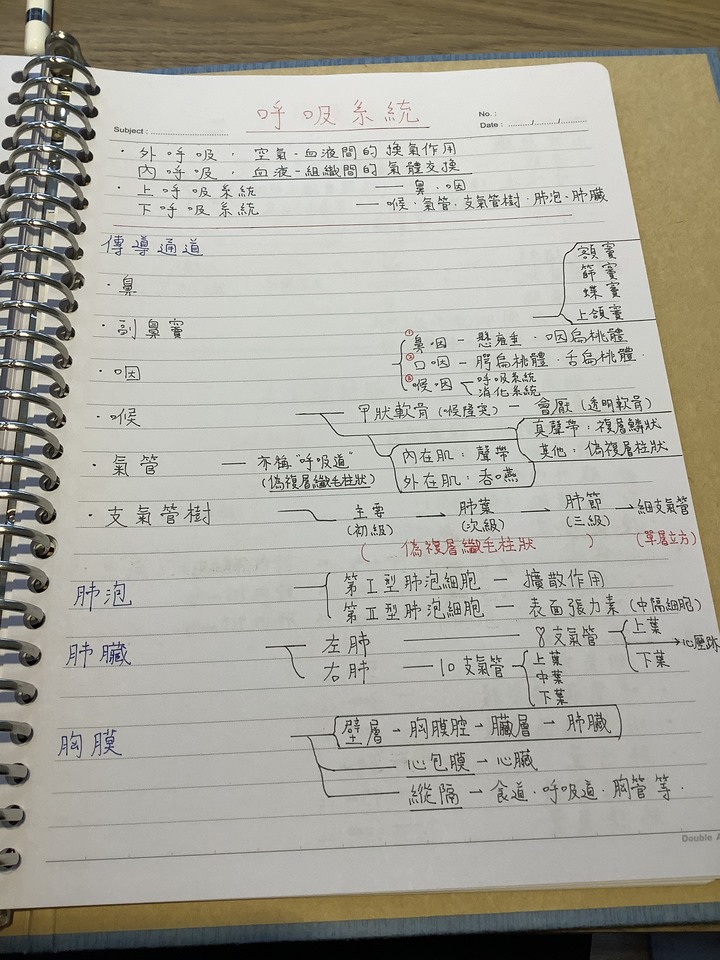 呼吸系統
No. :
Subject :
Date : ........./........./.........
· 外呼吸 · 空氣-血液間的換氣作用
內呼吸 · 血液-組織間的氣體交換
· 上呼吸系統 — 鼻 · 咽
下呼吸系統 — 喉 · 氣管 · 支氣管樹 · 肺泡 · 肺臟
傳導通道
· 鼻
額竇
篩竇
蝶竇
上頜竇
· 副鼻竇
· 咽
① 鼻咽 - 懸雍垂 · 咽扁桃體
② 口咽 - 腭扁桃體 · 舌扁桃體 ·
③ 喉咽 呼吸系統
消化系統
· 喉 甲狀軟骨 (喉隆突) — 會厭 (透明軟骨)
真聲帶 : 複層鱗狀
其他 : 偽複層柱狀
內在肌 : 聲帶
外在肌 : 吞嚥
· 氣管 — 亦稱 "呼吸道"
(偽複層纖毛柱狀)
· 支氣管樹 主要 → 肺葉 → 肺節 → 細支氣管
(初級) (次級) (三級)
( 偽複層纖毛柱狀 ) (單層立方)
肺泡 第I型肺泡細胞 — 擴散作用
第II型肺泡細胞 — 表面張力素 (中隔細胞)
肺臟 左肺 8支氣管 上葉 → 心壓跡
下葉
右肺 — 10支氣管 上葉
中葉
下葉
胸膜 壁層 - 胸膜腔 - 臟層 - 肺臟
心包膜 - 心臟
縱隔 - 食道 · 呼吸道 · 胸管等 ·
Double A